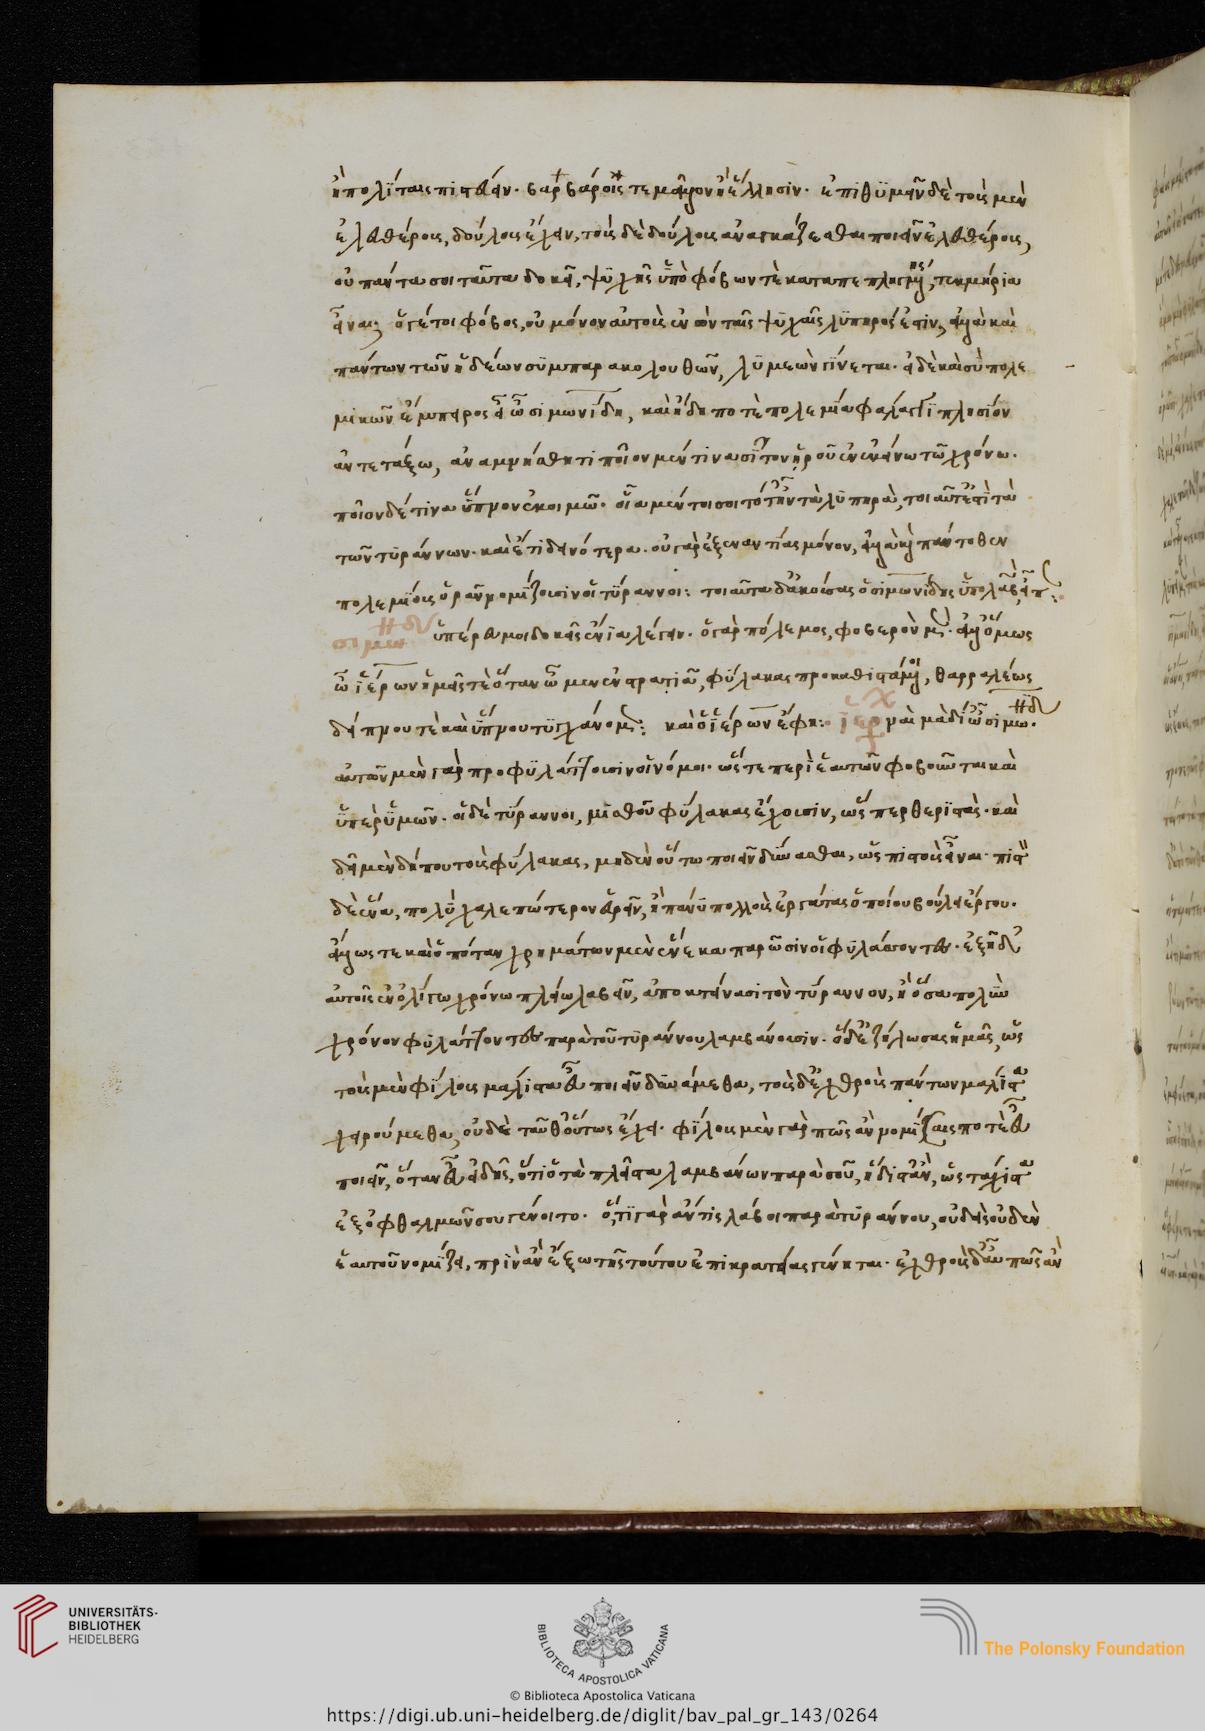 ἢ πολίταις πιστεύειν. βαρβάροις τε μᾶλλον ἢ ἕλλησιν. ἐπιθυμεῖν δὲ τοὺς μὲν
ἐλευθέρους, δούλους ἔχειν, τοὺς δὲ δούλους ἀναγκάζεσθαι ποιεῖν ἐλευθέρους,
οὐ πάντα σοι ταῦτα δοκεῖ, ψυχῆς ὑπὸ φόβων καταπεπληγμένης τεκμήρια
εἶναι; ὅ γέ τοι φόβος, οὐ μόνον αὐτὸς ἐνὼν ταῖς ψυχαῖς λυπηρός ἐστιν, ἀλλὰ καὶ
πάντων τῶν ἡδέων συμπαρακολουθῶν, λυμεὼν γίνεται. εἰ δὲ καὶ σὺ πολε
μικῶν ἔμπειρος εἶ ὦ σιμωνίδη, καὶ ἤδη ποτὲ πολεμία φάλαγγι πλησίον
ἀντετάξω, ἀναμνήσθητι ποῖον μέν τινα σῖτον ᾑροῦ ἐν ἐκείνω τῶ χρόνω.
ποῖον δέ τινα ὕπνον ἐκοιμῶ. οἷα μέντοι σοι τότ' ἦν τὰ λυπηρὰ, τοιαῦτ' ἐστὶ τὰ
τῶν τυράννων. καὶ ἔτι δεινότερα. οὐ γὰρ ἐξεναντίας μόνον, ἀλλὰ καὶ πάντοθεν
πολεμίους ὁρᾶν νομίζουσιν οἱ τύραννοι: ταῦτα δ' ἀκούσας ὁ σιμωνίδης ὑπολαβὼν εἶπ:
σιμων ὑπέρευ μοι δοκεῖς ἔνια λέγειν. ὁ γὰρ πόλεμος, φοβερὸν μέν. ἀλλ' ὅμως
ὦ ἱέρων ἡμεῖς τε ὅταν ὦμεν ἐν στρατιᾶ, φύλακας προκαθιστάμενοι, θαρραλέως
δείπνου τε καὶ ὕπνου τυγχάνομεν: καὶ ὁ ἱέρων ἔφη: ἱερ ναὶ μὰ δί' ὦ σιμω.
αὐτῶν μὲν γὰρ προφυλάττουσιν οἱ νόμοι. ὥστε περὶ ἑαυτῶν φοβοῦνται καὶ
ὑπὲρ ὑμῶν. οἱ δὲ τύραννοι, μισθοῦ φύλακας ἔχουσιν, ὥσπερ θεριστάς. καὶ
δεῖ μὲν δήπου τοὺς φύλακας, μηδὲν οὕτω ποιεῖν δύνασθαι, ὡς πιστοὺς εἶναι. πιστὸν
δὲ ἕνα, πολὺ χαλεπώτερον εὑρεῖν, ἢ πάνυ πολλοὺς ἐργάτας ὁποίου βούλει ἔργου.
ἄλλως τε καὶ ὁπόταν χρημάτων μὲν ἕνεκα παρῶσιν οἱ φυλάσσοντες. ἐξῇ δ'
αὐτοῖς ἐν ὀλίγω χρόνω πλείω λαβεῖν, ἀποκτείνασι τὸν τύραννον, ἢ ὅσα πολὺν
χρόνον φυλάττοντες παρὰ τοῦ τυράννου λαμβάνουσιν. ὃ δ' ἐζήλωσας ἡμᾶς, ὡς
τοὺς μὲν φίλους μάλιστα εὖ ποιεῖν δυνάμεθα, τοὺς δ' ἐχθροὺς πάντων μάλιστα
χειρούμεθα, οὐδὲ ταῦθ' οὕτως ἔχει. φίλους μὲν γὰρ πῶς ἂν νομίσαις ποτὲ εὖ
ποιεῖν, ὅταν εὖ εἰδῇς, ὅτι ὁ τὰ πλεῖστα λαμβάνων παρὰ σοῦ, ἥδιστ' ἂν, ὡς τάχιστα
ἐξ ὀφθαλμῶν σου γένοιτο. ὅ,τι γὰρ ἄν τις λάβοι παρὰ τυράννου, οὐδεὶς οὐδὲν
ἑαυτοῦ νομίζει, πρὶν ἂν ἔξω τῆς τούτου ἐπικρατείας γένηται. ἐχθροὺς δ' αὖ πῶς ἂν
UNIVERSITÄTS-
BIBLIOTHEK
HEIDELBERG
BIBLIOTECA APOSTOLICA VATICANA
The Polonsky Foundation
© Biblioteca Apostolica Vaticana
https://digi.ub.uni-heidelberg.de/diglit/bav_pal_gr_143/0264